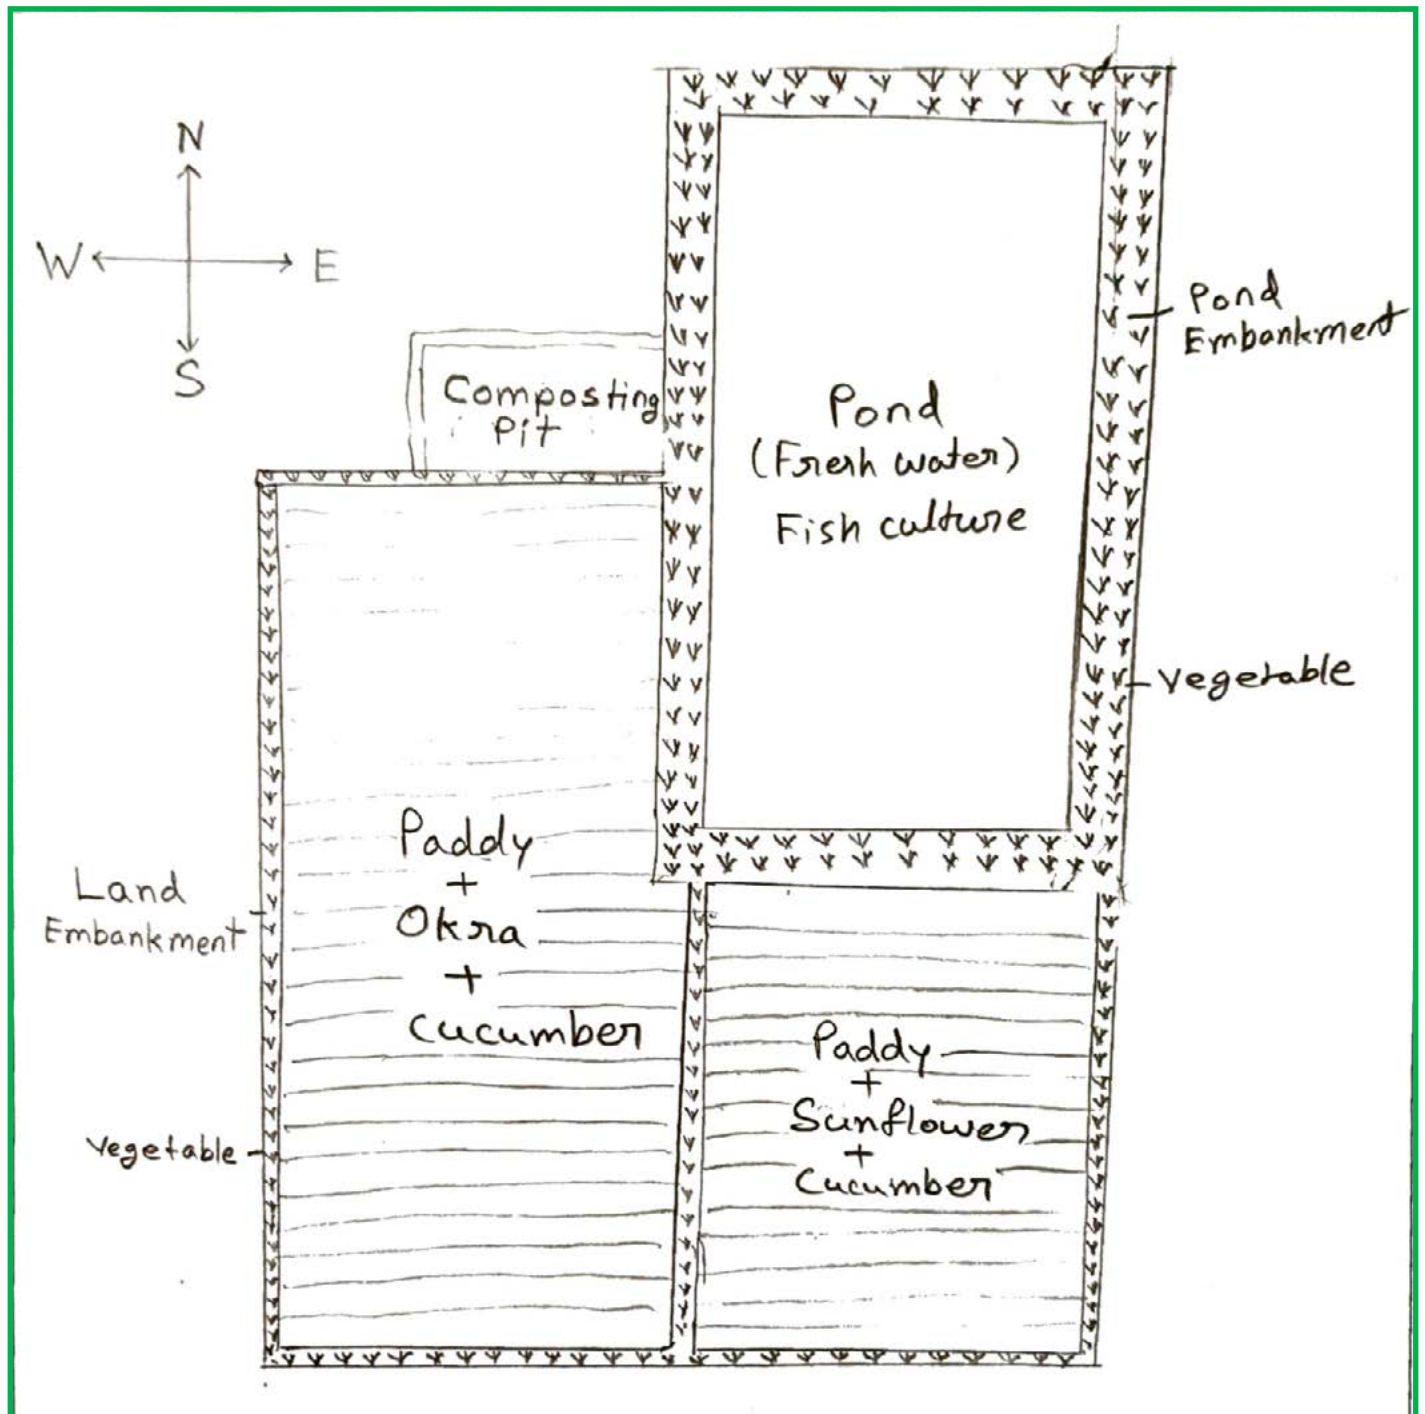 N
W E
S
Composting
Pit
Pond
(Fresh water)
Fish culture
Pond
Embankment
Vegetable
Paddy
+
Okra
+
Cucumber
Land
Embankment
Vegetable
Paddy
+
Sunflower
+
Cucumber